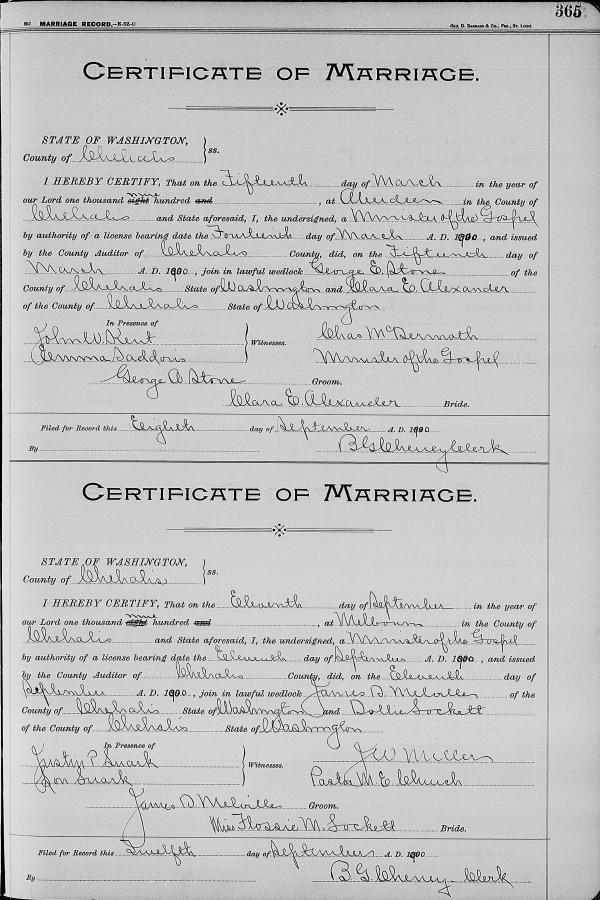 807 MARRIAGE RECORD.—E-SZ-G GEO. D. BARNARD & CO., PRS., ST. LOUIS 365
CERTIFICATE OF MARRIAGE.
STATE OF WASHINGTON, } ss.
County of Chehalis
I HEREBY CERTIFY, That on the Fifteenth day of March in the year of
our Lord one thousand nine eight hundred and , at Aberdeen in the County of
Chehalis and State aforesaid, I, the undersigned, a Minister of the Gospel
by authority of a license bearing date the Fourteenth day of March A. D. 1900 , and issued
by the County Auditor of Chehalis County, did, on the Fifteenth day of
March A. D. 1900 , join in lawful wedlock George E. Stone of the
County of Chehalis State of Washington and Clara E. Alexander
of the County of Chehalis State of Washington
In Presence of
John W. Kent } Witnesses. Chas McDermoth
Gemma Saddoris Minister of the Gospel
George A Stone Groom.
Clara E. Alexander Bride.
Filed for Record this Eighth day of September A. D. 1900
By B G Cheney Clerk
CERTIFICATE OF MARRIAGE.
STATE OF WASHINGTON, } ss.
County of Chehalis
I HEREBY CERTIFY, That on the Eleventh day of September in the year of
our Lord one thousand nine eight hundred and , at Melbourn in the County of
Chehalis and State aforesaid, I, the undersigned, a Minister of the Gospel
by authority of a license bearing date the Eleventh day of September A. D. 1900 , and issued
by the County Auditor of Chehalis County, did, on the Eleventh day of
September A. D. 1900 , join in lawful wedlock James D. Melville of the
County of Chehalis State of Washington and Dollie Sockett
of the County of Chehalis State of Washington
In Presence of
Justin P. Snark } Witnesses. J W Miller
Don Snark Pastor M. E. Church
James D Melville Groom.
Miss Flossie M. Sockett Bride.
Filed for Record this Twelfth day of September A. D. 1900
By B. G. Cheney Clerk